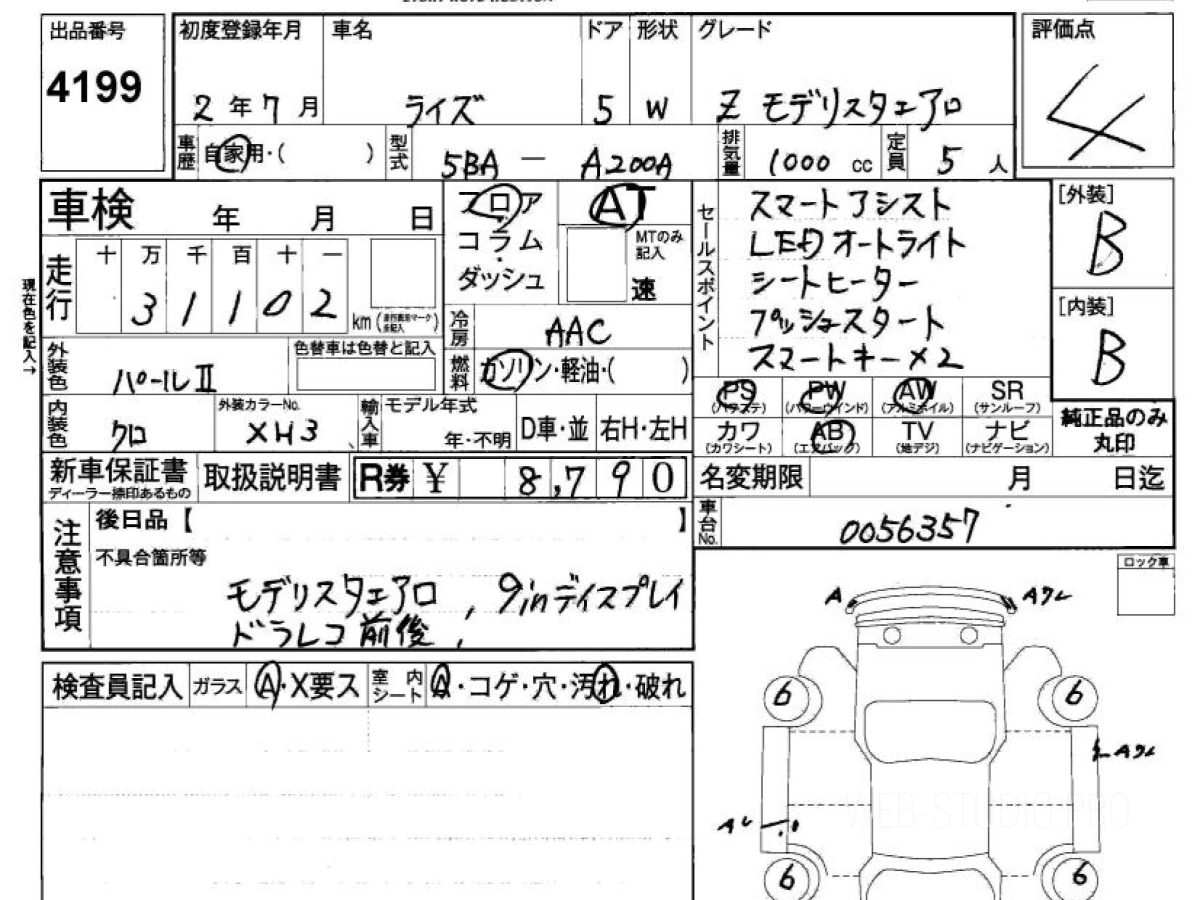 出品番号
4199
初度登録年月
2年7月
車名
ライズ
ドア
5
形状
W
グレード
Z モデリスタエアロ
評価点
4
車歴
自家用・( )
型式
5BA - A200A
排気量
1000 cc
定員
5 人
車検 年 月 日
現在色を記入→
走行
十 万 千 百 十 一
3 1 1 0 2
km
フロア
コラム
ダッシュ
AT
MTのみ記入
速
冷房
AAC
燃料
ガソリン・軽油・( )
セールスポイント
スマートアシスト
LEDオートライト
シートヒーター
プッシュスタート
スマートキー×2
[外装]
B
[内装]
B
外装色
パールII
色替車は色替と記入
内装色
クロ
外装カラーNo.
XH3
輸入車
モデル年式
年・不明
D車・並
右H・左H
PS (パワステ)
PW (パワーウインド)
AW (アルミホイル)
SR (サンルーフ)
カワ (カワシート)
AB (エアバック)
TV (地デジ)
ナビ (ナビゲーション)
純正品のみ
丸印
新車保証書
ディーラー捺印あるもの
取扱説明書
R券 ¥ 8,790
名変期限 月 日迄
車台No.
0056357
注意事項
後日品【 】
不具合箇所等
モデリスタエアロ , 9inディスプレイ
ドラレコ前後 ,
ロック車
検査員記入
ガラス
A・X要ス
室内シート
A・コゲ・穴・汚れ・破れ
A
Aクレ
6
6
Aクレ
Aレ
6
6
WEB-STUDIO.PRO